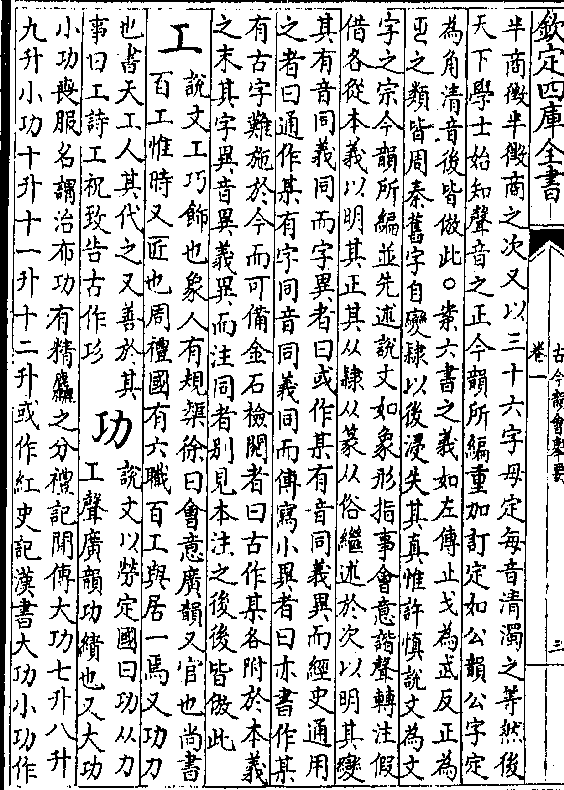 欽定四庫全書
古今韻會舉要
卷一
三
半商徵半徵商之次又以三十六字母定每音清濁之等然後
天下學士始知聲音之正今韻所編重加訂定如公韻公字定
為角清音後皆倣此○案六書之義如左傳止戈為武反正為
𠃵之類皆周秦舊字自變隸以後浸失其真惟許慎說文為文
字之宗今韻所編並先述說文如象形指事會意諧聲轉注假
借各從本義以明其正其从隸从篆从俗繼述於次以明其變
其有音同義同而字異者曰或作某有音同義異而經史通用
之者曰通作某有字同音同義同而傳寫小異者曰亦書作某
有古字難施於今而可備金石檢閱者曰古作某各附於本義
之末其字異音異義異而注同者別見本注之後後皆倣此
工 說文工巧飾也象人有規榘徐曰會意廣韻又官也尚書
百工惟時又匠也周禮國有六職百工與居一焉又功力
也書天工人其代之又善於其
事曰工詩工祝致告古作𢒄 功 說文以勞定國曰功从力
工聲廣韻功績也又大功
小功喪服名謂治布功有精麤之分禮記間傳大功七升八升
九升小功十升十一升十二升或作紅史記漢書大功小功作